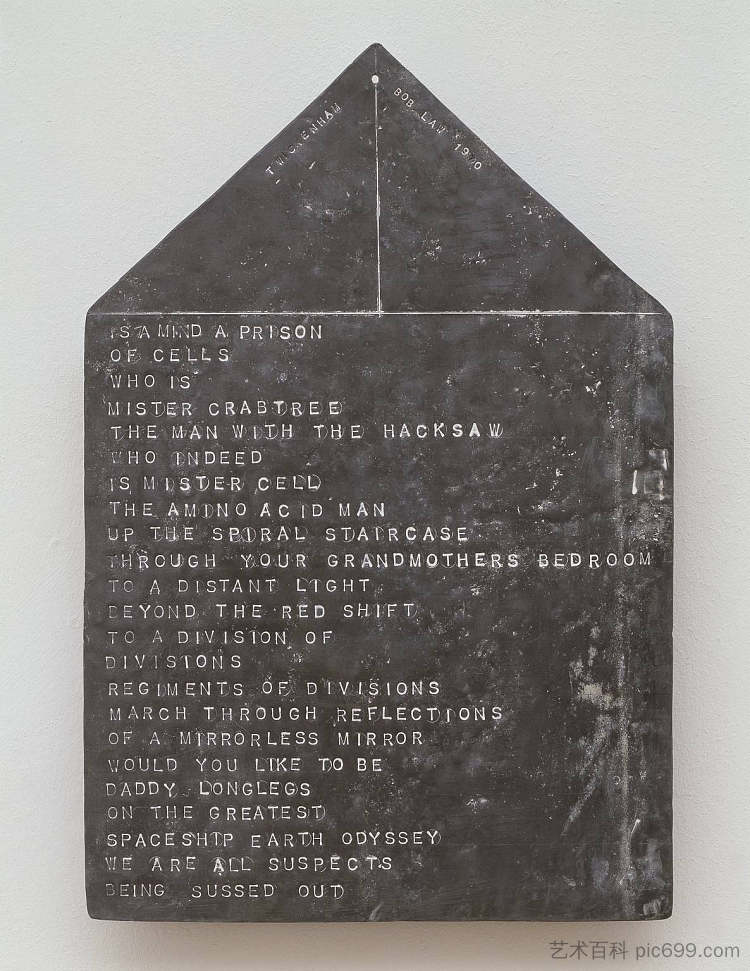 TWICKENHAM
BOB LAW 1970
IS A MIND A PRISON
OF CELLS
WHO IS
MISTER CRABTREE
THE MAN WITH THE HACKSAW
WHO INDEED
IS MISTER CELL
THE AMINO ACID MAN
UP THE SPIRAL STAIRCASE
THROUGH YOUR GRANDMOTHERS BEDROOM
TO A DISTANT LIGHT
BEYOND THE RED SHIFT
TO A DIVISION OF
DIVISIONS
REGIMENTS OF DIVISIONS
MARCH THROUGH REFLECTIONS
OF A MIRRORLESS MIRROR
WOULD YOU LIKE TO BE
DADDY LONGLEGS
ON THE GREATEST
SPACESHIP EARTH ODYSSEY
WE ARE ALL SUSPECTS
BEING SUSSED OUT
艺术百科 pic699.com